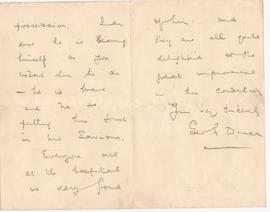 possession. I am
sure he is bearing
himself as you
want him to do
- he is brave
and he is
putting his trust
in his Saviour.
Everyone out
at the hospital
is very fond
of him and
they are all quite
delighted at the
great improvement
in his condition
Yours very sincerely
Geo S Duncan